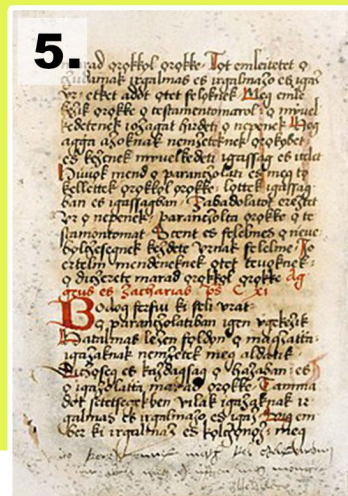 5.
marad ørøkkøl ørøkke Tot emleitetet ø
irgalmas es irgalmazo es igaz
vr etket addt øtet feløknek Meg emle
kezik ørøkke ø testamentomarol ø mỳuel
kedetenek iozagat hirdeti ø nepenek Hog
aggia azoknak nemzeteknek ørøkøbet
es kezenek mỳuelkedeti igassag es itelet
mend ø parancholati es meg tø
kellettek ørøkkøl ørøkke lottek igassag
ban es igassagban Zabadolatot ereztet
vr ø nepenek parancholta ørøkke ø te
stamontomat Scent es felelmes ø neue
bølchesegnek kezdete vrnak felelme Jo
ertelm mendeneknek øtet teuøknek
ø dicherete marad ørøkkøl ørøkke Ag
geus es Zacharias ps Cxi
Bodog ferfiu ki feli vrat
ø parancholatiban igen vgekezik
Hatalmas lezen føldøn ø magzatta
igazaknak nemzetek meg aldatik
Dichøseg es kazdagsag ø hazaban es
ø igazolatta marad ørøkke Tamma
dot setetsegekben vilak igazaknak ir
galmas es irgalmazo es igaz Vig em
ber ki irgalmaz es kølchønøz meg